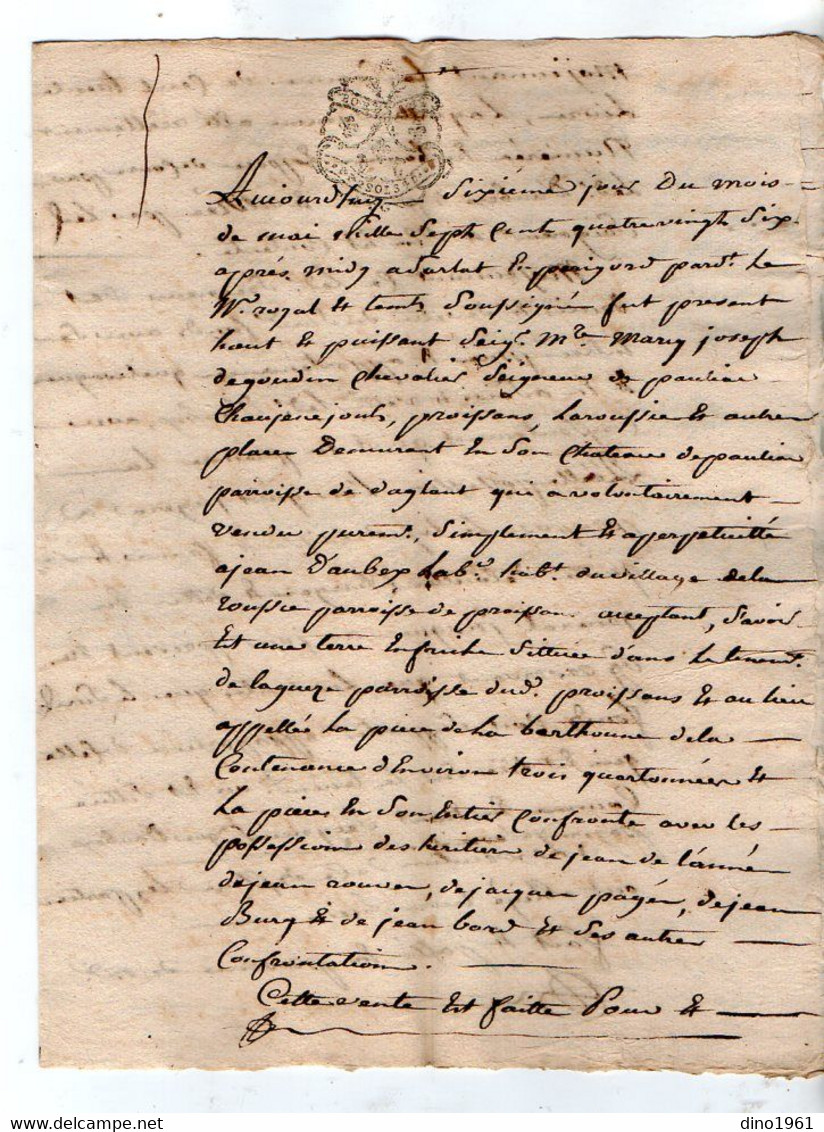 Aujourdhuy sixiéme jour du mois
de mai mille sept cent quatre vingt six
aprés midy a Sarlat en perigord pard.t le
N.re royal et temb. soussignés fut present
haut et puissant seig.r M.re Marq joseph
degoudin chevalier seigneur de pauliac
proissans, laroussie et autres
places demeurant en son chateau depauliac
parroisse de daglant qui a volontairement
vendu purem.t, simplement et aperpetuitté
ajean Daubex lab.r hab.t du village dela
roussie parroisse de proissans acceptant, savoir
est une terre enfriche sittuée dans le tenem.t
de lagueze parroisse dud. proissans et au lieu
appellée la piece de la barthoune dela
contenance d'environ trois quartonnées et
la pieces en son entier confronte avec les
possessions des heritiers de jean de
dejean rouven, dejacques pagés, dejean
Burg et de jean bord et des autres
confrontations.
Cette vente est faitte pour et
dino1961